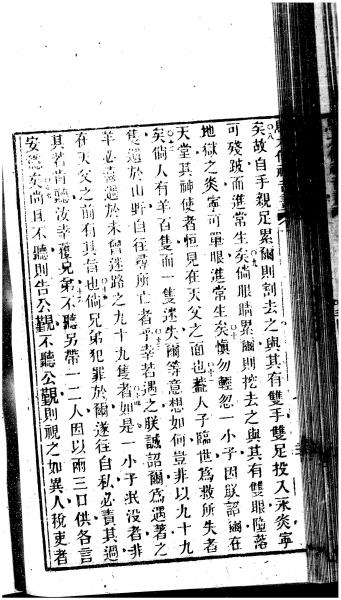 矣故自手親足累爾則割去之與其有雙手雙足投入永炎寧
可殘跛而進常生矣倘眼睛累爾則挖去之與其有雙眼墮落
地獄之炎寧可單眼進常生矣慎勿輕忽一小子因朕詔爾在
天堂其神使者恒見在天父之面也蓋人子臨世爲救所失者
矣倘人有羊百隻而一隻迷失爾等意想如何豈非以九十九
隻遺於山野自往尋所亡者乎幸若遇之朕誠詔爾爲遇著之
羊必喜過於未曾迷路之九十九隻者如是一小子泯没者非
在天父之面前有其旨也倘兄弟犯罪於爾遂往自私必責其過
其若肯聽汝幸獲兄弟不聽另帶一二人因以兩三口供各言
安穩矣尚且不聽則告公觀不聽公觀則視之如異人稅吏者